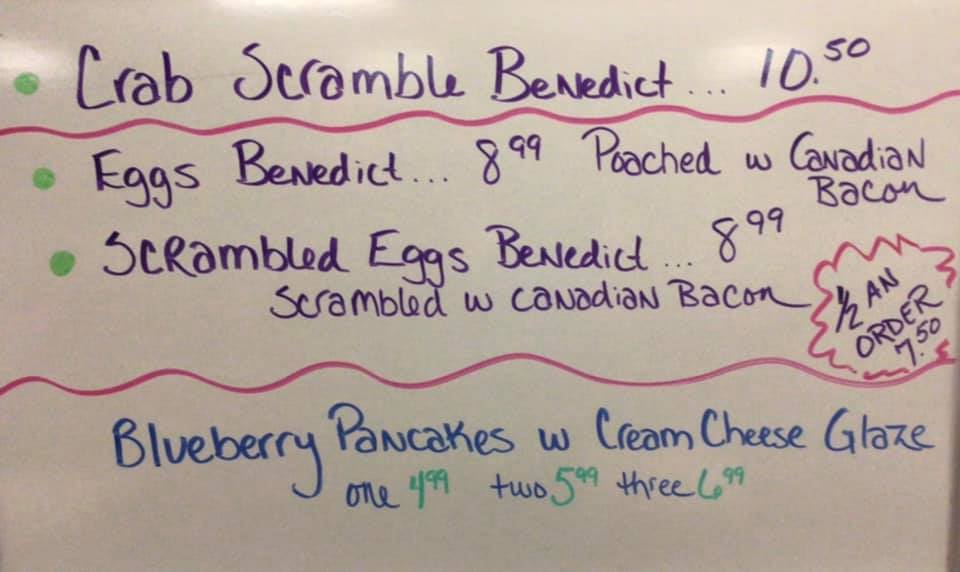 Crab Scramble Benedict... 10.50
Eggs Benedict... 8 99 Poached w Canadian
Bacon
Scrambled Eggs Benedict... 8 99
Scrambled w Canadian Bacon
1/2 AN
ORDER
7.50
Blueberry Pancakes w Cream Cheese Glaze
one 4 99 two 5 99 three 6 99